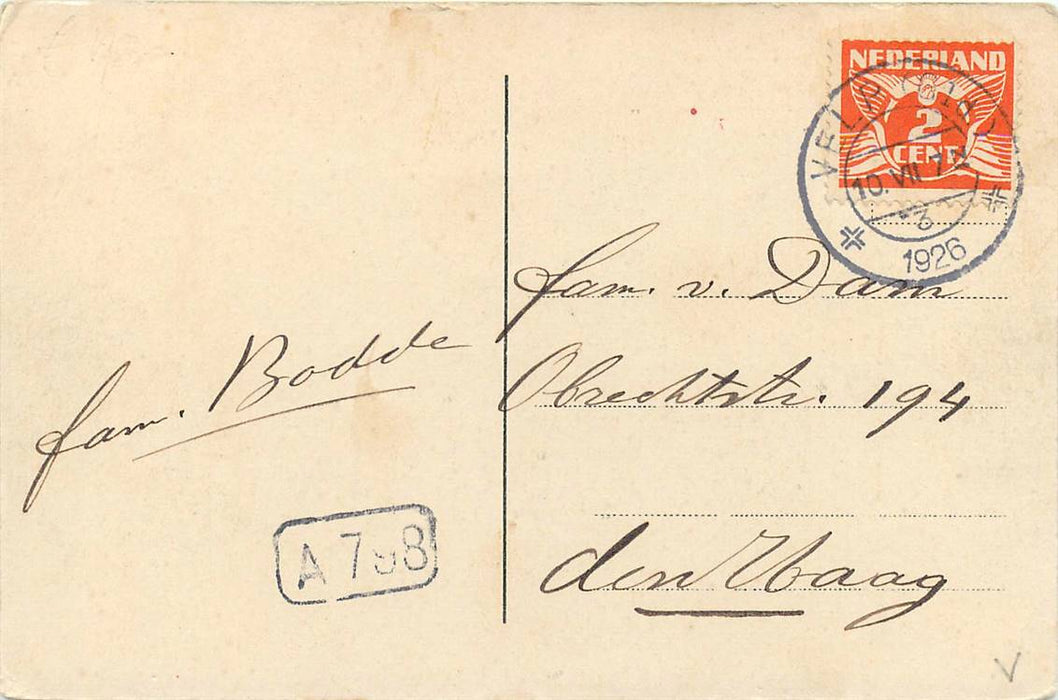 NEDERLAND
2
CENT
VELP
10. VII
1926
fam. v. Dam
Obrechtstr. 194
den Haag
fam. Bodde
A 798
V